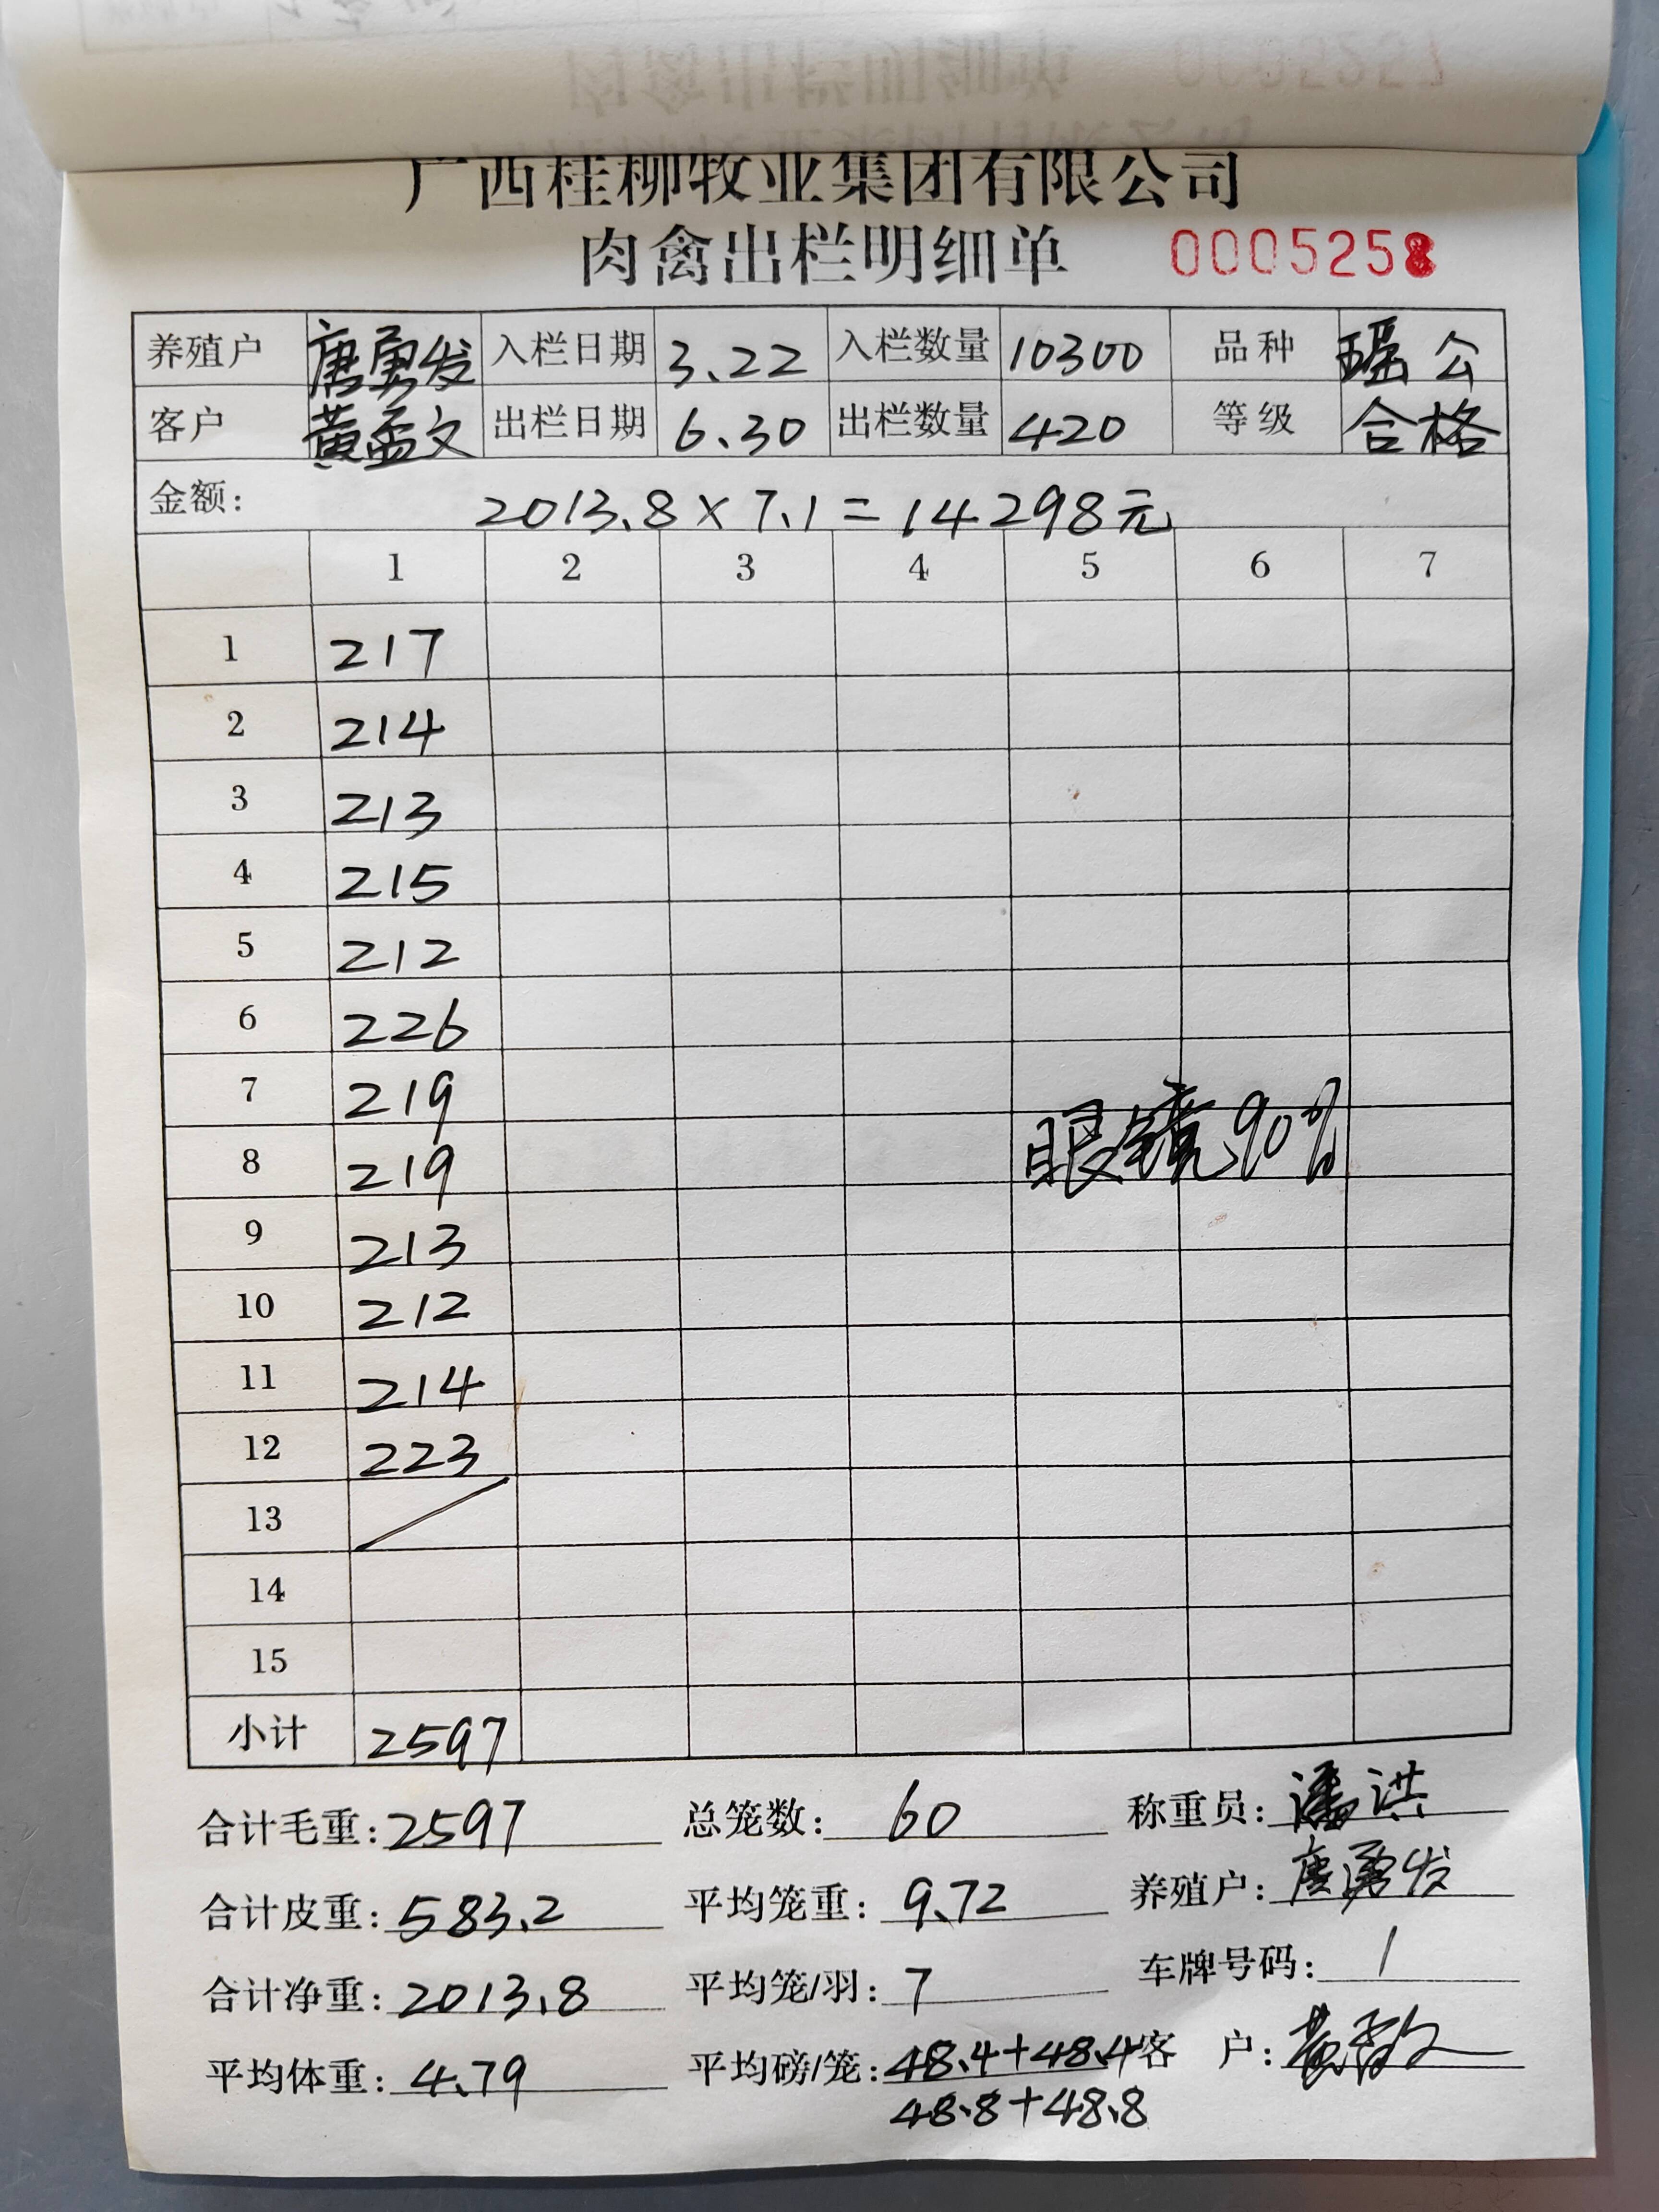 广西桂柳牧业集团有限公司
肉禽出栏明细单 0005258
养殖户 唐勇发 入栏日期 3.22 入栏数量 10300 品种 瑶公
客户 黄孟文 出栏日期 6.30 出栏数量 420 等级 合格
金额: 2013.8×7.1=14298元
1 2 3 4 5 6 7
1 217
2 214
3 213
4 215
5 212
6 226
7 219
8 219 眼镜90%
9 213
10 212
11 214
12 223
13
14
15
小计 2597
合计毛重: 2597 总笼数: 60 称重员: 潘洪
合计皮重: 583.2 平均笼重: 9.72 养殖户: 唐勇发
合计净重: 2013.8 平均笼/羽: 7 车牌号码: 1
平均体重: 4.79 平均磅/笼: 48.4+48.4 客 户:
48.8+48.8